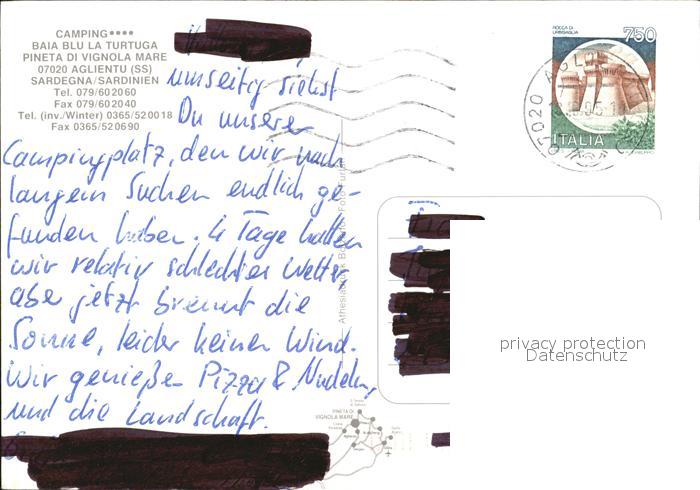 CAMPING★★★★
BAIA BLU LA TURTUGA
PINETA DI VIGNOLA MARE
07020 AGLIENTU (SS)
SARDEGNA/SARDINIEN
Tel. 079/602060
Fax 079/602040
Tel. (inv./Winter) 0365/520018
Fax 0365/520690
umseitig siehst
Du unseren
Campingplatz, den wir nach
langem Suchen endlich ge-
funden haben. 4 Tage hatten
wir relativ schlechtes Wetter
aber jetzt brennt die
Sonne, leider keinen Wind.
Wir genießen Pizza & Nudeln,
und die Landschaft.
ROCCA DI
URBISAGLIA
750
ITALIA
07020
privacy protection
Datenschutz
PINETA DI
VIGNOLA MARE